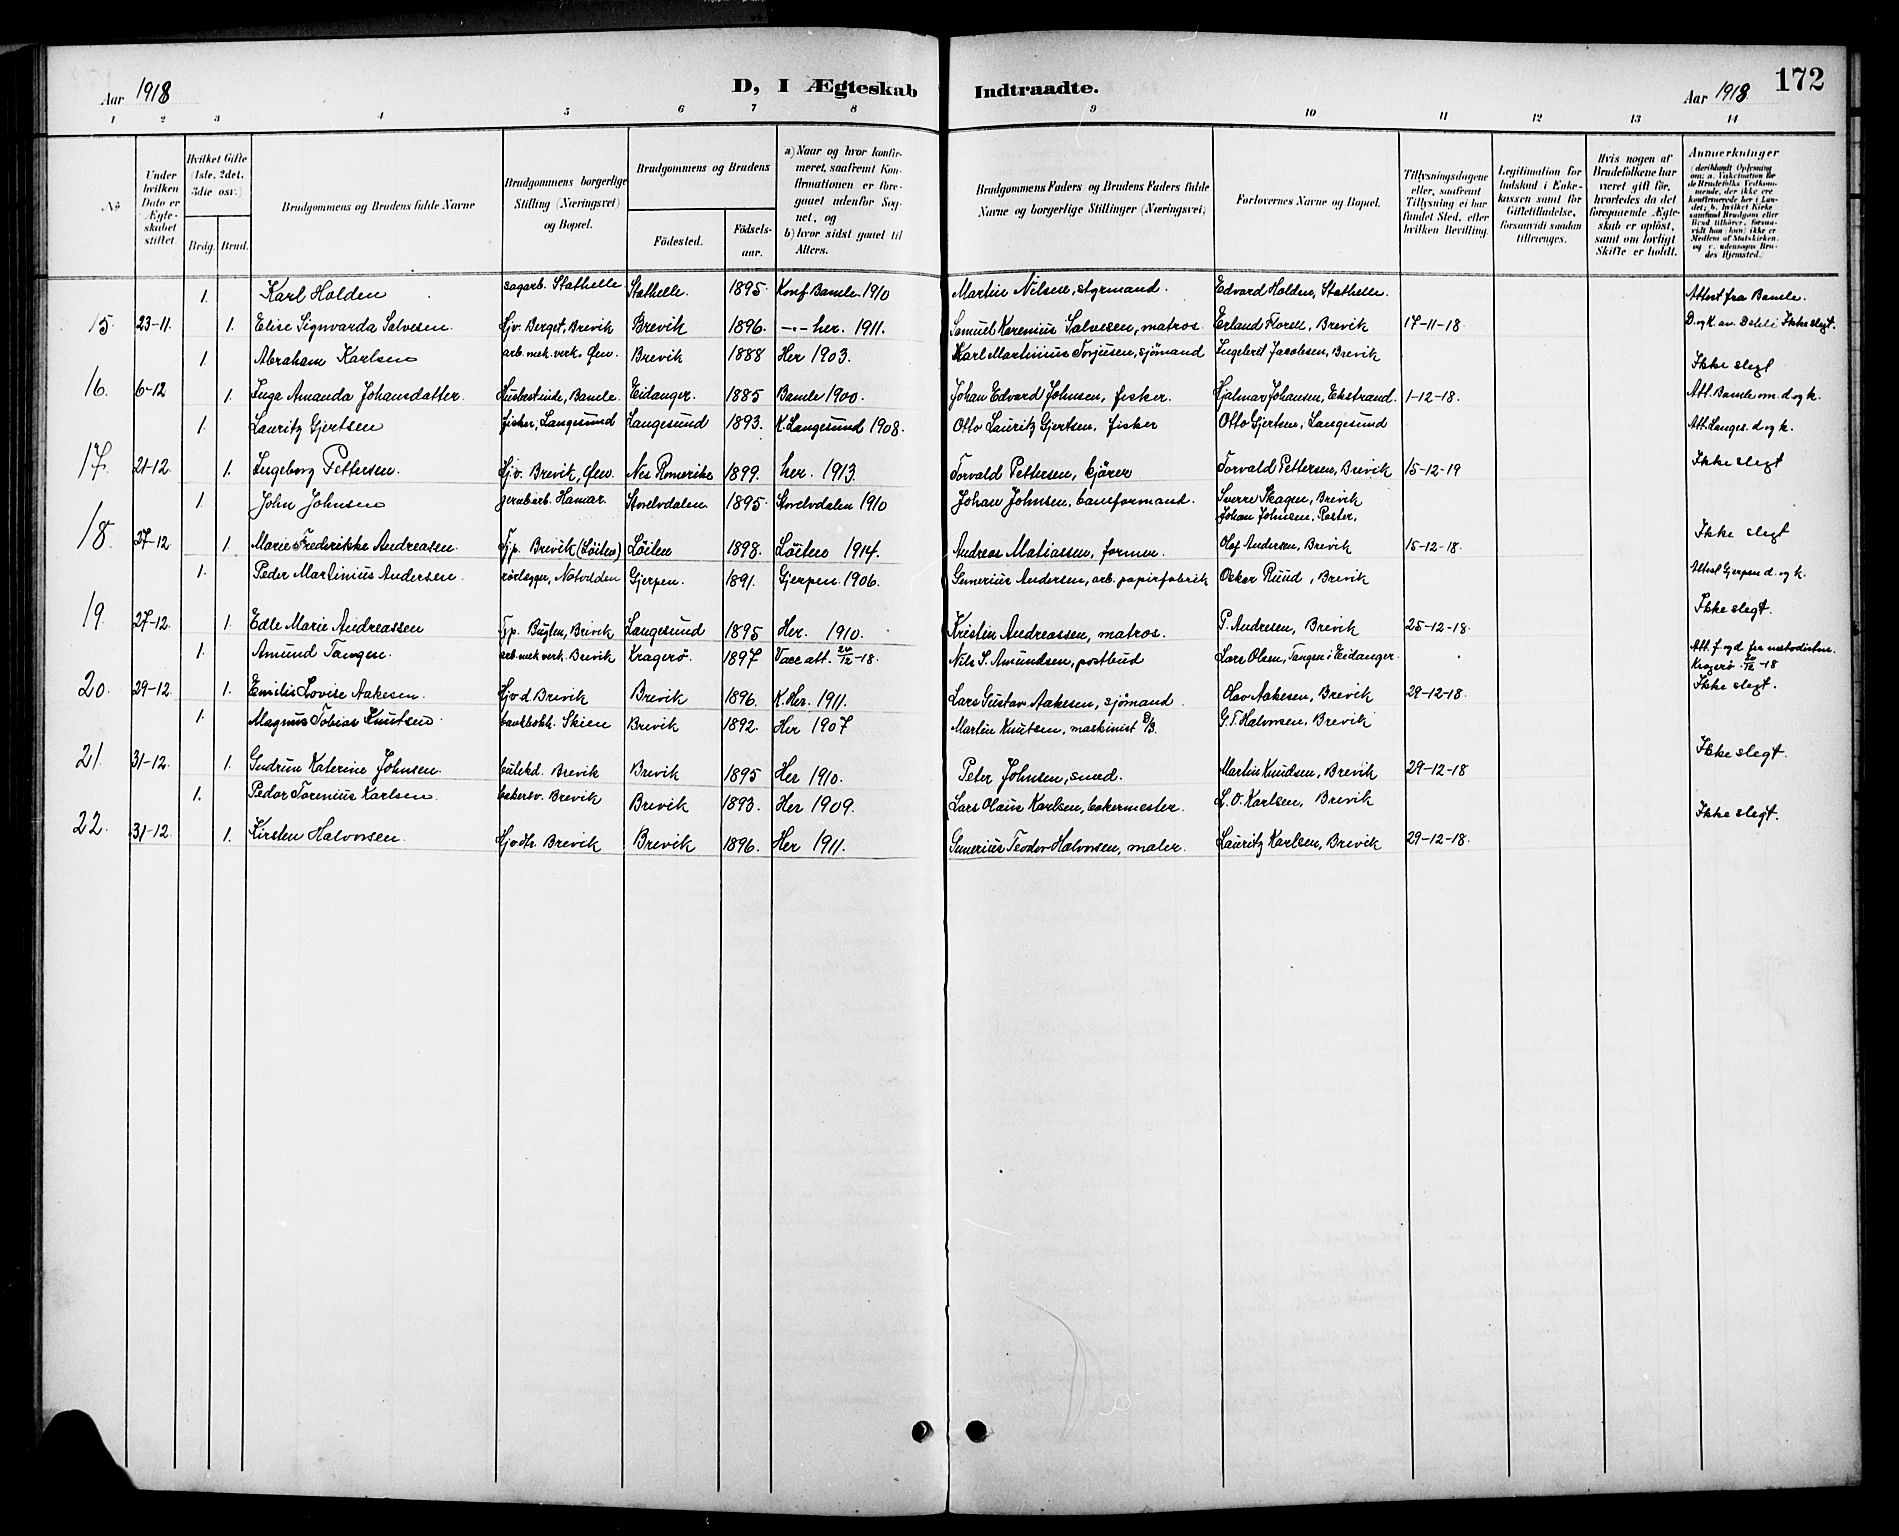 172
Aar 1918
D, I Ægteskab Indtraadte.
Aar 1918
1 2 3 4 5 6 7 8 9 10 11 12 13 14
No
Under hvilken Dato er Ægteskabet stiftet.
Hvilket Gifte (1ste, 2det, 3die osv.)
Brdg. Brud.
Brudgommens og Brudens fulde Navne
Brudgommens borgerlige Stilling (Næringsvei) og Bopæl.
Brudgommens og Brudens
Födested.
Födsels-aar.
a) Naar og hvor konfirmeret, saafremt Konfirmationen er foregaaet udenfor Sognet, og
b) hvor sidst gaaet til Alters.
Brudgommens Faders og Brudens Faders fulde Navne og borgerlige Stillinger (Næringsvei)
Forlovernes Navne og Bopæl.
Tillysningsdagene eller, saafremt Tillysning ei har fundet Sted, efter hvilken Bevilling.
Legitimation for Indskud i Enkekassen samt for Giftetilladelse, forsaavidt saadan tiltrænges.
Hvis nogen af Brudefolkene har været gift för, hvorledes da det foregaaende Ægteskab er oplöst, samt om lovligt Skifte er holdt.
Anmerkninger (deriblandt Oplysning om: a. Vakcination for de Brudefolks Vedkommende, der ikke ere konfirmerede her i Landet; b. hvilket Kirkesamfund Brudgom eller Brud tilhører, forsaavidt han (hun) ikke er Medlem af Statskirken, og c. udensogns Brudes Hjemsted.
1. Karl Holden sagarb. Stathelle Stathelle. 1895. Konf. Bamle 1910 Martin Nilsen, styrmand. Edvard Holden, Stathelle. Attest fra Bamle.
15. 23-11. 1. Elise Signvarda Salvesen. Hjv. Berget, Brevik Brevik 1896. -"- her. 1911. Samuel Karenius Salvesen, matros. Erland Florell, Brevik 17-11-18. Ikke slegt.
1 Abraham Karlsen arb. mek. verk. Öen. Brevik 1888 Her 1903. Karl Martinius Torjusen, sjömand Ingebret Jacobsen, Brevik
Ikke slegt
16. 6-12 1. Inga Amanda Johansdatter. Husbestinde, Bamle. Eidanger. 1885 Bamle 1900. Johan Edvard Johnsen, fisker. Hjalmar Johansen, Ekstrand. 1-12-18. Att. Bamle om d. og k.
1. Lauritz Gjertsen fisker, Langesund Langesund 1893. K. Langesund 1908. Otto Lauritz Gjertsen, fisker Otto Gjertsen, Langesund Att. Langes. d. og k.
17. 21-12. 1. Ingeborg Pettersen. Hjv. Brevik, Öen Nes Romerike 1899. her. 1913. Torvald Pettersen, kjörer Torvald Pettersen, Brevik 15-12-19 Ikke slegt
1. John Johnsen jernbarb. Hamar. Storelvdalen. 1895. Storelvdalen 1910 Johan Johnsen, baneformand. Sverre Skagen, Brevik
Johan Johnsen, Roster.
18. 27-12 1. Marie Frederikke Andreasen. Tjp. Brevik (Löiten) Löiten 1898. Löiten 1914. Andreas Matiassen, former. Olaf Andersen, Brevik 15-12-18. Ikke slegt
1. Peder Martinius Andersen. rörlegger, Notodden Gjerpen. 1891. Gjerpen 1906. Gunerius Andersen, arb. papirfabrik Oskar Ruud, Brevik Attest Gjerpen d. og k.
Ikke slegt.
19. 27-12. 1. Edle Marie Andreassen Tjp. Bugten, Brevik Langesund 1895 Her. 1910. Kristin Andreassen, matros. P. Andresen, Brevik 25-12-18.
1. Amund Tangen arb. mek verk. Brevik Kragerö. 1897 Vacc att. 20/12-18. Nils S. Amundsen, postbud Lars Olsen, Tangen i Eidanger. Att. f. og d. fra metodistm. Kragerö 20/12-18
20. 29-12. 1. Emilie Lovise Aakesen. Hjv d Brevik Brevik 1896. K. Her. 1911. Lars Gustav Aakesen, sjömand. Olav Aakesen, Brevik 29-12-18. Ikke slegt.
1. Magnus Tobias Knutsen bankbokh. Skien Brevik 1892. Her 1907 Martin Knutsen, maskinist D/S. G. T. Halvorsen, Brevik
21. 31-12. 1. Gudrun Katerine Johnsen. butikd. Brevik Brevik 1895 Her 1910. Peter Johnsen, smed. Martin Knudsen, Brevik 29-12-18 Ikke slegt.
1. Peder Torenius Karlsen. bakersv. Brevik Brevik 1893. Her 1909. Lars Olaus Karlsen, bakermester. L. O. Karlsen, Brevik
22. 31-12. 1. Kirsten Halvorsen. Hjvdtr. Brevik Brevik 1896. Her 1911. Gunerius Teodor Halvorsen, maler. Lauritz Karlsen, Brevik 29-12-18. Ikke slegt.